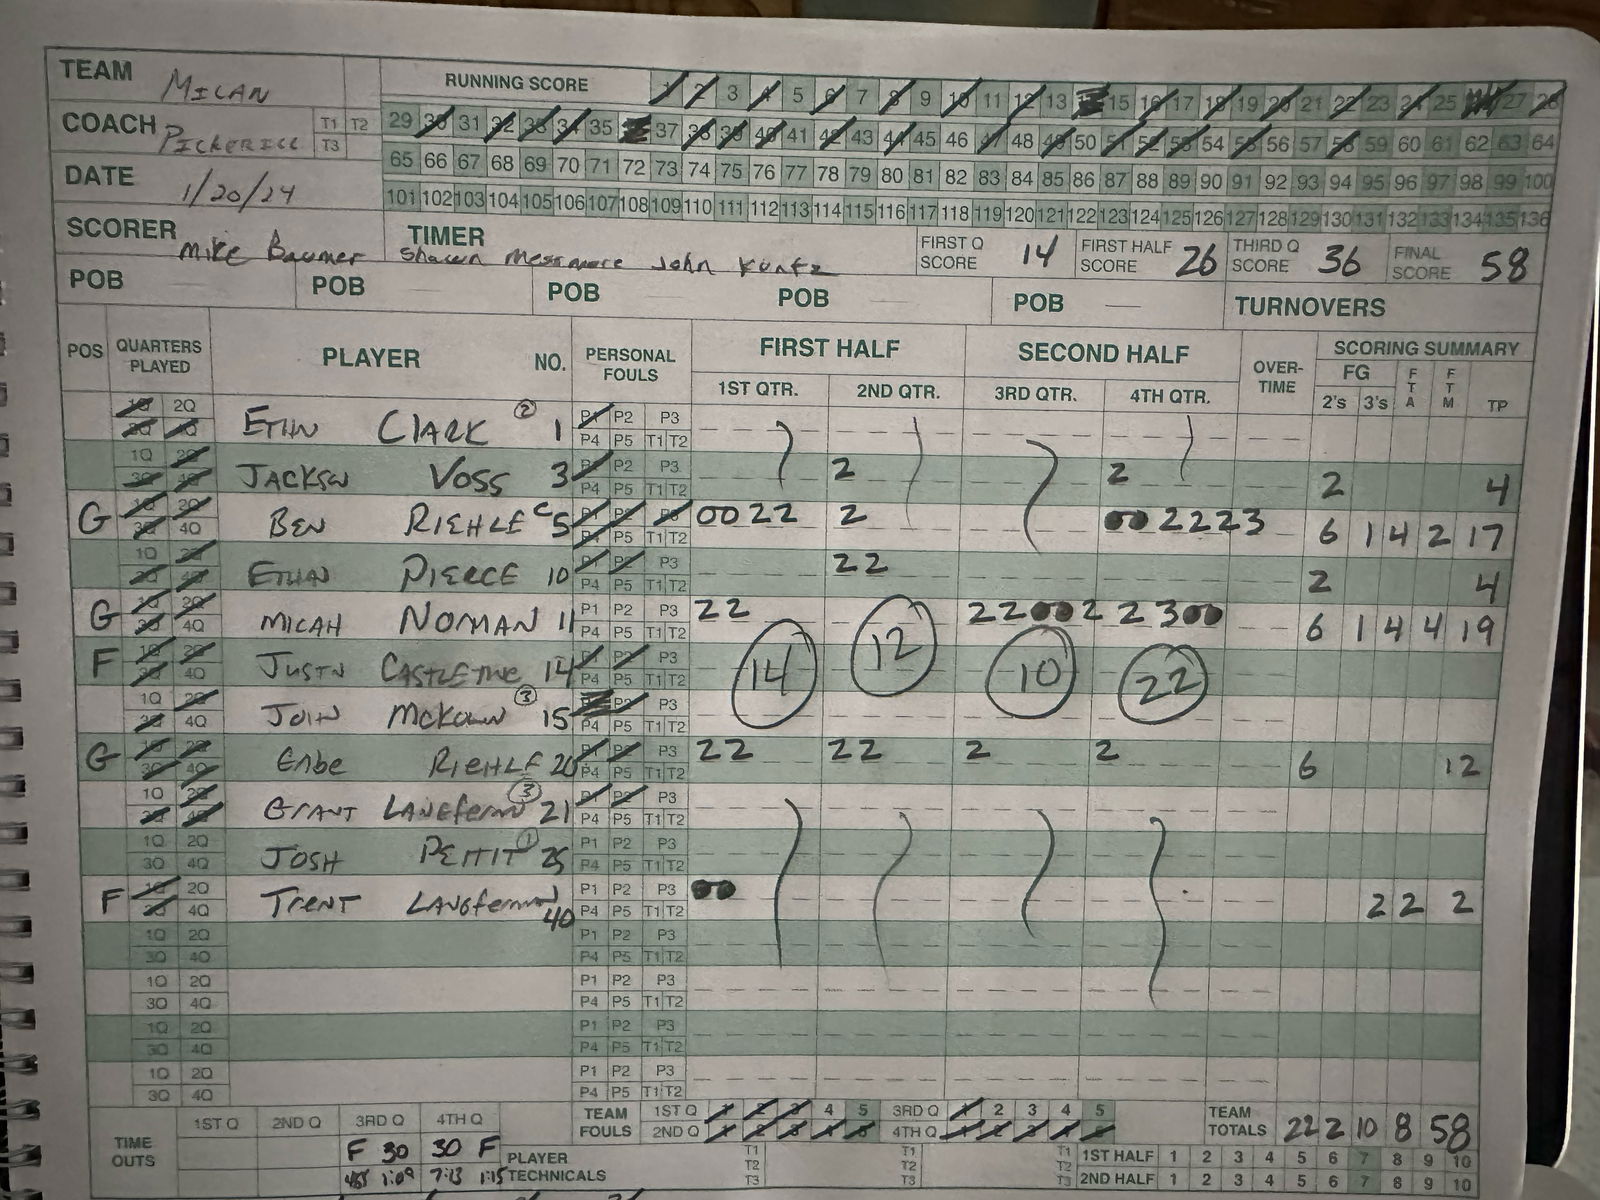 TEAM MILAN
RUNNING SCORE 1 2 3 4 5 6 7 8 9 10 11 12 13 15 16 17 18 19 20 21 22 23 24 25 27 28
COACH PICKERILL T1 T2 T3
29 30 31 32 33 34 35 37 38 39 40 41 42 43 44 45 46 47 48 49 50 51 52 53 54 55 56 57 58 59 60 61 62 63 64
65 66 67 68 69 70 71 72 73 74 75 76 77 78 79 80 81 82 83 84 85 86 87 88 89 90 91 92 93 94 95 96 97 98 99 100
DATE 1/20/24
101 102 103 104 105 106 107 108 109 110 111 112 113 114 115 116 117 118 119 120 121 122 123 124 125 126 127 128 129 130 131 132 133 134 135 136
SCORER Mike Baumer TIMER Shawn Messmore John Kuntz
FIRST Q SCORE 14 FIRST HALF SCORE 26 THIRD Q SCORE 36 FINAL SCORE 58
POB POB POB POB POB TURNOVERS
POS QUARTERS PLAYED PLAYER NO. PERSONAL FOULS FIRST HALF SECOND HALF OVER-TIME SCORING SUMMARY
1ST QTR. 2ND QTR. 3RD QTR. 4TH QTR. FG 2's 3's FTA FTM TP
1Q 2Q 3Q 4Q ETHN CLARK 2 1 P1 P2 P3 P4 P5 T1 T2
1Q 2Q 3Q 4Q JACKSN VOSS 3 P1 P2 P3 P4 P5 T1 T2 2 2 2 4
G 1Q 2Q 3Q 4Q BEN RIEHLE C 5 P1 P2 P3 P4 P5 T1 T2 00 22 2 00 2 2 2 3 6 1 4 2 17
1Q 2Q 3Q 4Q ETHAN PIERCE 10 P1 P2 P3 P4 P5 T1 T2 22 2 4
G 1Q 2Q 3Q 4Q MICAH NOMAN 11 P1 P2 P3 P4 P5 T1 T2 22 22 00 2 2 3 00 6 1 4 4 19
F 1Q 2Q 3Q 4Q JUSTN 14 P1 P2 P3 P4 P5 T1 T2 14 12 10 22
1Q 2Q 3Q 4Q JOHN McKOWN 3 15 P1 P2 P3 P4 P5 T1 T2
G 1Q 2Q 3Q 4Q Gabe RIEHLE 20 P1 P2 P3 P4 P5 T1 T2 22 22 2 2 6 12
1Q 2Q 3Q 4Q GRANT LANGfermn 3 21 P1 P2 P3 P4 P5 T1 T2
1Q 2Q 3Q 4Q JOSH PETTIT 1 25 P1 P2 P3 P4 P5 T1 T2
F 1Q 2Q 3Q 4Q Trent LANGfermn 40 P1 P2 P3 P4 P5 T1 T2 00 2 2 2
1Q 2Q 3Q 4Q P1 P2 P3 P4 P5 T1 T2
1Q 2Q 3Q 4Q P1 P2 P3 P4 P5 T1 T2
1Q 2Q 3Q 4Q P1 P2 P3 P4 P5 T1 T2
1Q 2Q 3Q 4Q P1 P2 P3 P4 P5 T1 T2
TIME OUTS 1ST Q 2ND Q 3RD Q 4TH Q
F 30 30 F
1:09 7:13 1:15
TEAM FOULS 1ST Q 1 2 3 4 5 3RD Q 1 2 3 4 5
2ND Q 1 2 3 4 5 4TH Q 1 2 3 4 5
TEAM TOTALS 22 2 10 8 58
PLAYER TECHNICALS T1 T2 T3 T1 T2 T3 T1 T2 T3
1ST HALF 1 2 3 4 5 6 7 8 9 10
2ND HALF 1 2 3 4 5 6 7 8 9 10